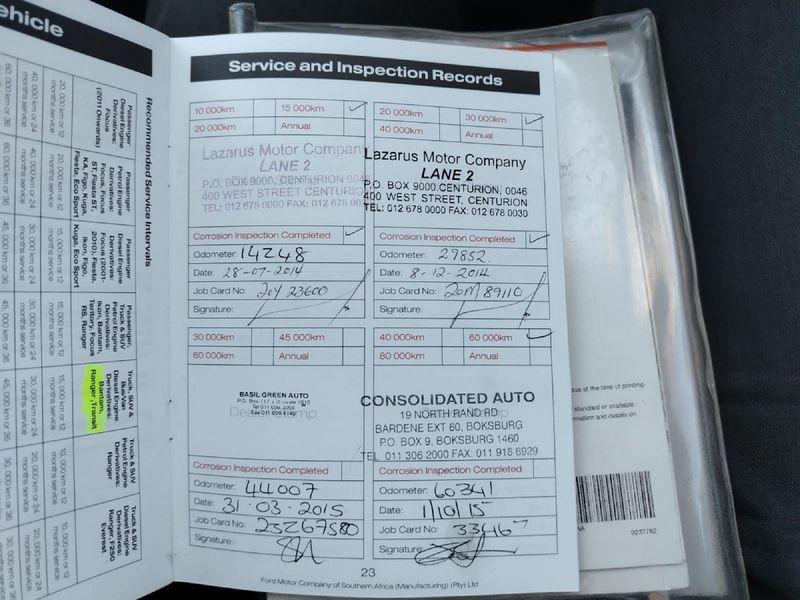 ehicle
Recommended Service Intervals
Passenger
Diesel Engine
Derivatives:
Focus
(2011 Onwards)
20, 000 km or 12
months service
40, 000 km or 24
months service
60, 000 km or 36
Passenger
Petrol Engine
Derivatives:
Focus, Focus
ST, Fiesta ST,
KA, Figo, Kuga,
Fiesta, Eco Sport
20, 000 km or 12
months service
40, 000 km or 24
months service
60, 000 km or 36
Passenger
Diesel Engine
Derivatives:
Focus (2001-
2010), Fiesta,
Ikon, Figo,
Kuga, Eco Sport
15, 000 km or 12
months service
30, 000 km or 24
months service
45, 000 km or 36
Passenger,
Truck & SUV
Petrol Engine
Derivatives:
Ikon, Bantam,
Territory, Focus
RS, Ranger
15, 000 km or 12
months service
30, 000 km or 24
months service
45, 000 km or 36
Truck, SUV &
Bus/Van
Diesel Engine
Derivatives:
Bantam,
Ranger ,Transit
15, 000 km or 12
months service
30, 000 km or 24
months service
45, 000 km or 36
Truck & SUV
Petrol Engine
Derivatives:
Ranger
10, 000 km or 12
months service
20, 000 km or 24
months service
30, 000 km or 36
Truck & SUV
Diesel Engine
Derivatives:
Ranger, F250
Everest
10, 000 km or 12
months service
20, 000 km or 24
months service
Service and Inspection Records
10 000km 15 000km ✓
20 000km Annual
Lazarus Motor Company
LANE 2
P.O. BOX 9000, CENTURION 0046
400 WEST STREET CENTURION
TEL: 012 678 0000 FAX: 012 678 003
Corrosion Inspection Completed ✓
Odometer: 14248
Date: 28-07-2014
Job Card No: 20Y 23600
Signature:
20 000km 30 000km ✓
40 000km Annual
Lazarus Motor Company
LANE 2
P.O. BOX 9000.CENTURION, 0046
400 WEST STREET, CENTURION
TEL: 012 678 0000 FAX: 012 678 0030
Corrosion Inspection Completed ✓
Odometer: 29852
Date: 8-12-2014
Job Card No: 20M 89110
Signature:
30 000km 45 000km
60 000km Annual
BASIL GREEN AUTO
Corrosion Inspection Completed
Odometer: 44007
Date: 31-03-2015
Job Card No: 23Z67580
Signature:-
40 000km 60 000km ✓
80 000km Annual
CONSOLIDATED AUTO
19 NORTH RAND RD
BARDENE EXT 60, BOKSBURG
P.O. BOX 9. BOKSBURG 1460
TEL 011 306 2000 FAX: 011 918 6929
Corrosion Inspection Completed
Odometer: 60341
Date: 1/10/15
Job Card No: 334167
Signature:
23
Ford Motor Company of Southern Africa (Manufacturing) (Pty) Ltd
at the time of printing.
standard or available
information and details on
9237762